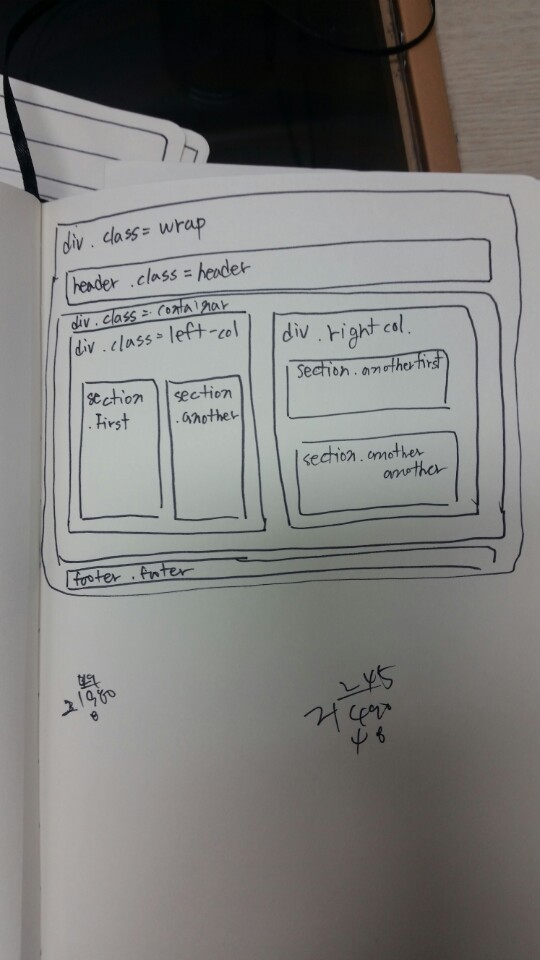 div. class= wrap
header .class = header
div. class= containar
div. class= left-col
div. right col.
section
.First
section
.another
section. another first
section. another
another
footer .footer
2 1980
8
245
2 490
4 8